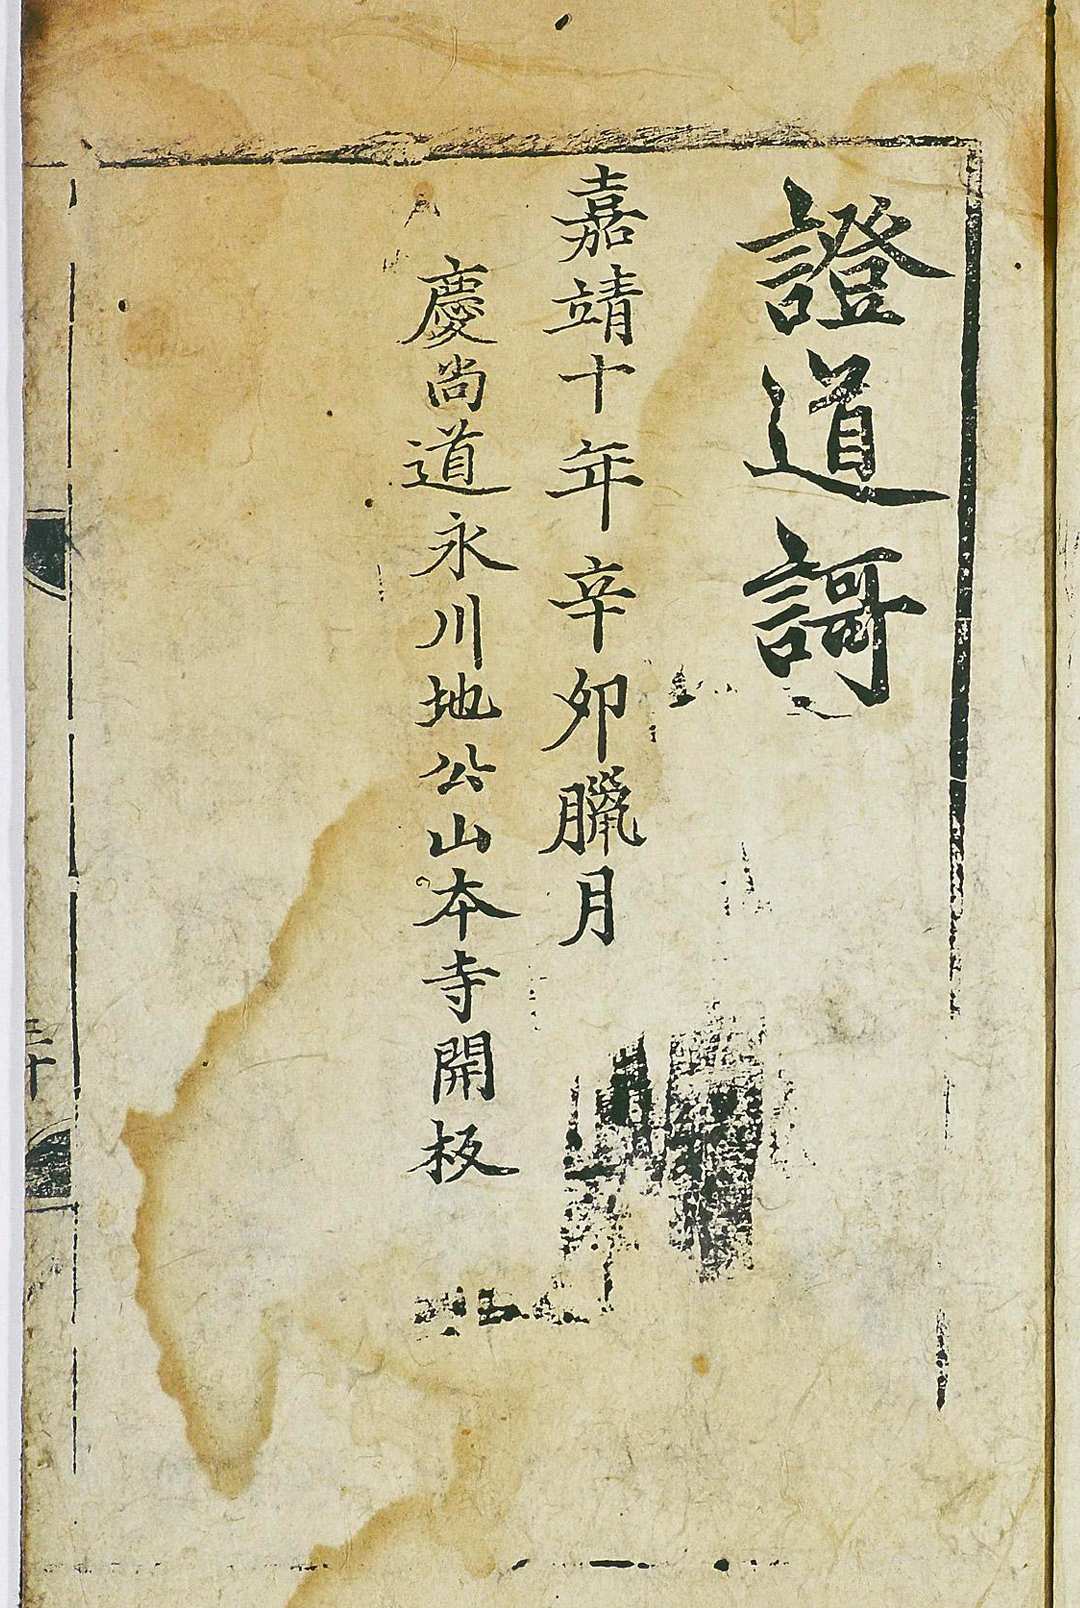 證道謌
嘉靖十年辛卯臘月
慶尚道永川地公山本寺開板
三十